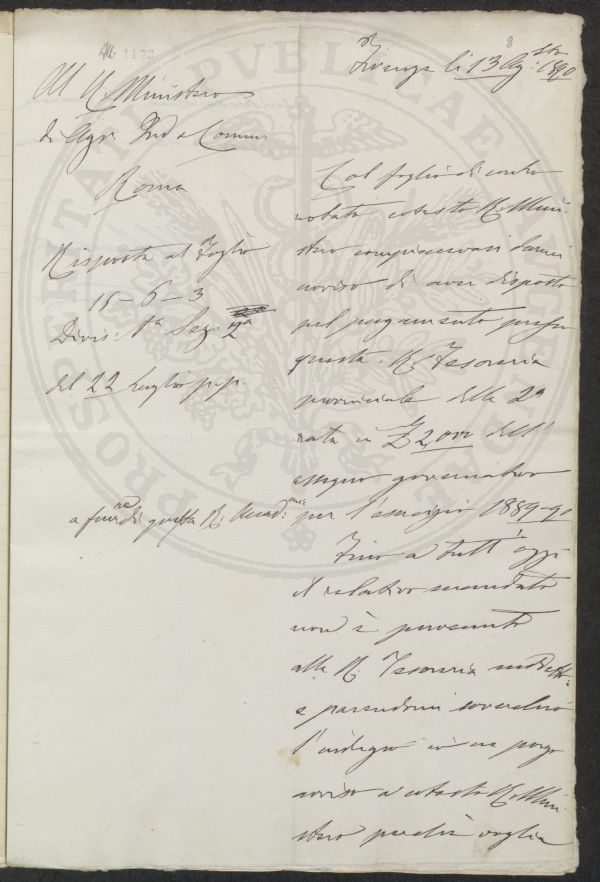 8
Firenze li 13 Ag:sto 1890
Al R. Ministero
di Agr. Ind e Comm
Roma
Risposta al Foglio
15-6-3
Divis: 1a Sez: 2a
del 22 Luglio p.p.
Col foglio di contro
notato cotesto R. Mini
stero compiacevasi darmi
avviso di aver disposto
pel pagamento presso
questa R. Tesoreria
provinciale della 2a
rata in £ 2,000 dell'
assegno governativo
a favore di questa R. Accad:mia per l'esercizio 1889-90
Fino a tutt'oggi
il relativo mandato
non è pervenuto
alla R. Tesoreria
e parendomi soverchio
l'indugio ne porgo
avviso a cotesto R. Mini
stero perchè voglia
PROSPERITATI PUBLICAE